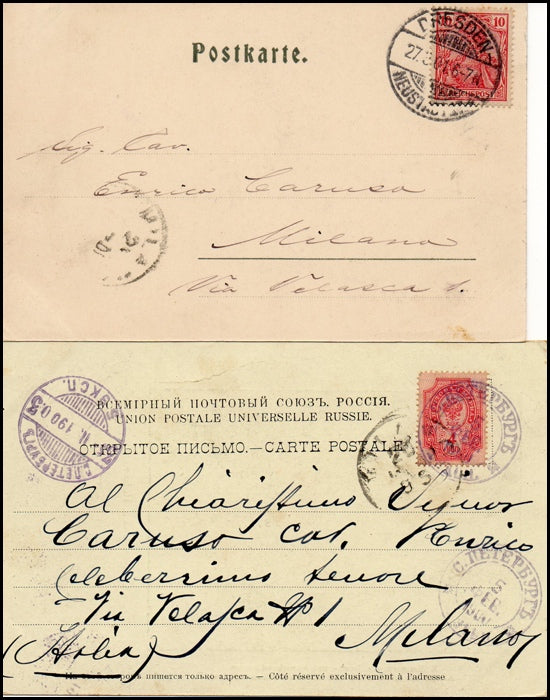 10
REICHSPOST
DRESDEN
NEUSTADT
Postkarte.
Sig. Cav.
Enrico Caruso
Milano
Via Velasca 1.
ВСЕМІРНЫЙ ПОЧТОВЫЙ СОЮЗЪ. РОССІЯ.
UNION POSTALE UNIVERSELLE RUSSIE.
ОТКРЫТОЕ ПИСЬМО.—CARTE POSTALE
С.ПЕТЕРБУРГЪ
ЭКСП.
Al Chiarissimo Signor
Caruso cav. Enrico
celeberrimo tenore
Via Velasca № 1
Milano
(Italia)
С.ПЕТЕРБУРГЪ
На этой сторонѣ пишется только адресъ. — Côté réservé exclusivement à l'adresse